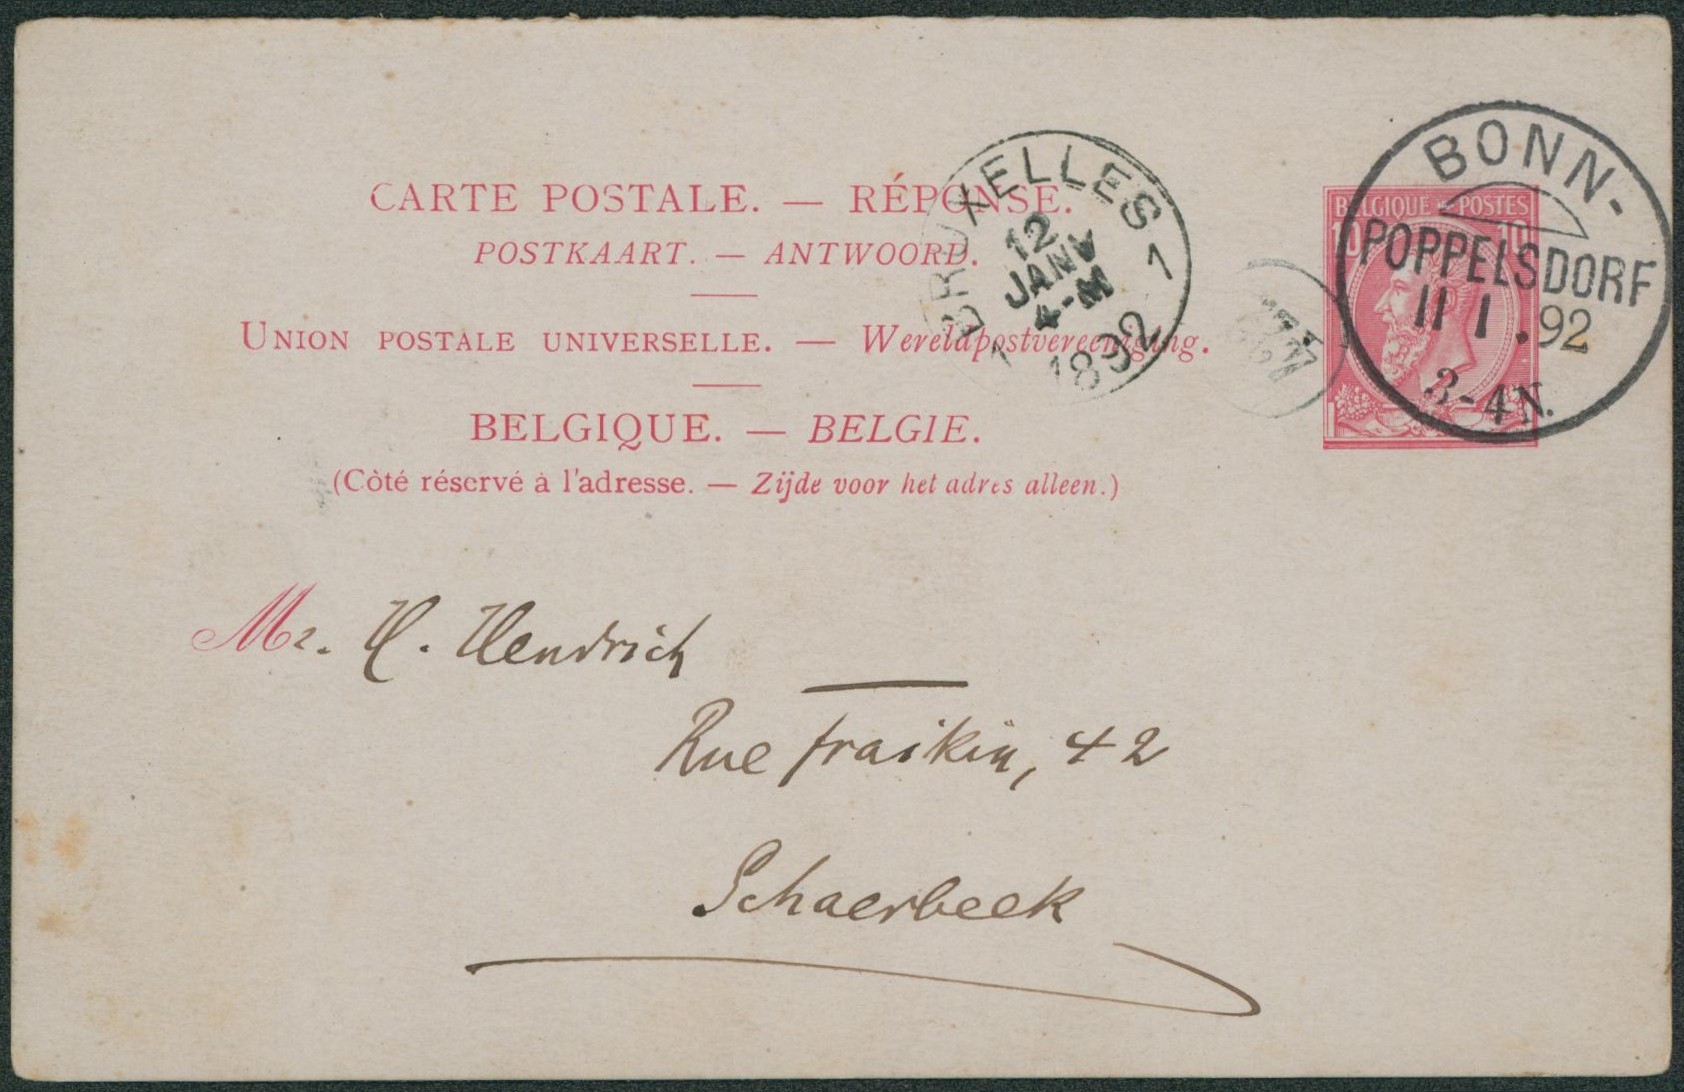 CARTE POSTALE. — RÉPONSE.
POSTKAART. — ANTWOORD.
UNION POSTALE UNIVERSELLE. — Wereldpostvereeniging.
BELGIQUE. — BELGIE.
(Côté réservé à l'adresse. — Zijde voor het adres alleen.)
BRUXELLES
12
JANV
4-M
1892
1 1
BELGIQUE POSTES
10 10
BONN-
POPPELSDORF
11 1 .92
3-4N.
Mr. H. Hendrich
Rue Fraikin, 42
Schaerbeek